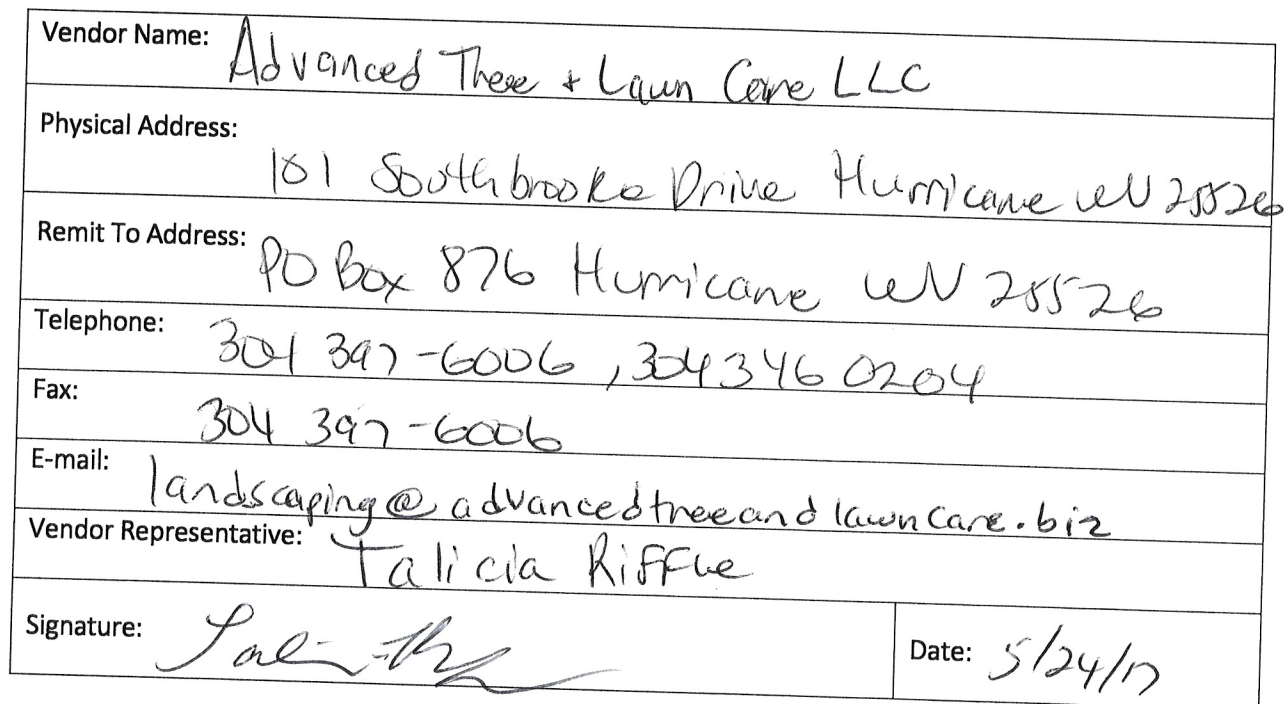 Vendor Name: Advanced Tree + Lawn Care LLC
Physical Address:
101 Southbrooke Drive Hurricane WV 25526
Remit To Address: PO Box 876 Hurricane WV 25526
Telephone: 304 397-6006, 304 346 0204
Fax: 304 397-6006
E-mail: landscaping@advancedtreeandlawncare.biz
Vendor Representative: Talicia Riffle
Signature:
Date: 5/24/17